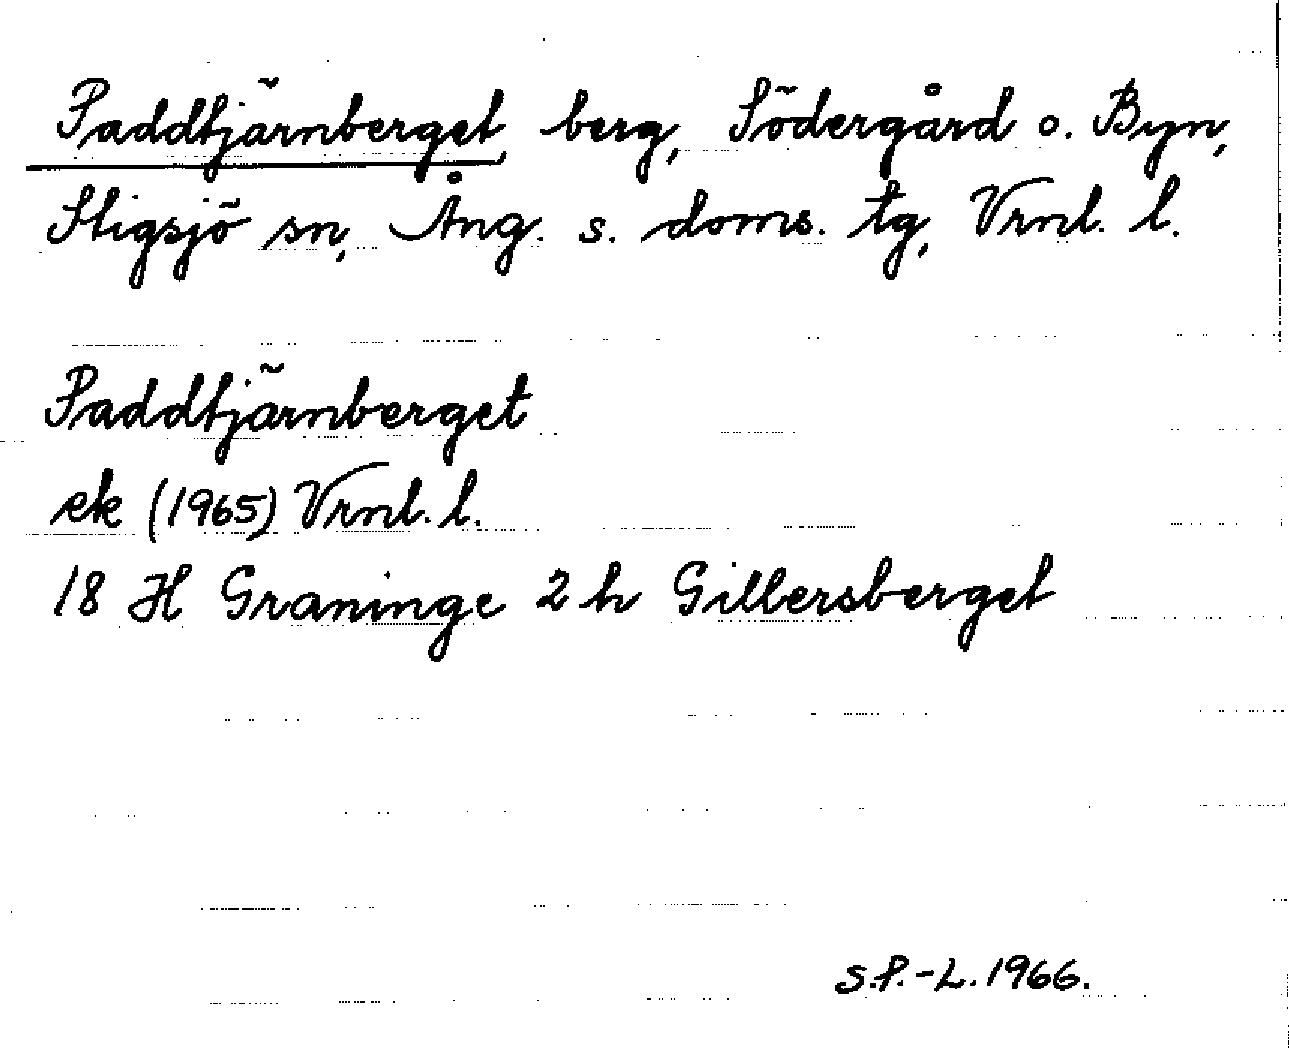 Paddtjärnberget, berg, Södergård o. Byn,
Stigsjö sn, Ång. s. doms. tg, Vrnl. l.
Paddtjärnberget
ek (1965) Vrnl. l.
18 H Graninge 2 h Gillersberget
S.P.-L. 1966.